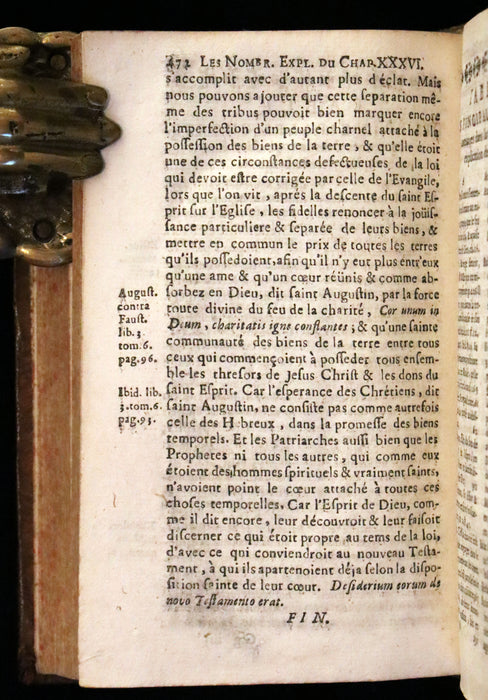 472 LES NOMBR. EXPL. DU CHAP. XXXVI.
s'accomplit avec d'autant plus d'éclat. Mais
nous pouvons ajouter que cette separation mê-
me des tribus pouvoit bien marquer encore
l'imperfection d'un peuple charnel attaché à la
possession des biens de la terre, & qu'elle étoit
une de ces circonstances defectueuses de la loi
qui devoit estre corrigée par celle de l'Evangile,
lors que l'on vit, après la descente du saint Es-
prit sur l'Eglise, les fidelles renoncer à la joüis-
sance particuliere & separée de leurs biens, &
mettre en commun le prix de toutes les terres
qu'ils possedoient, afin qu'il n'y eut plus entr'eux
qu'une ame & qu'un cœur réünis & comme ab-
sorbez en Dieu, dit saint Augustin, par la force
toute divine du feu de la charité, Cor unum in
Deum, charitatis igne conflantes; & qu'une sainte
communauté des biens de la terre entre tous
ceux qui commençoient à posseder tous ensem-
ble les thresors de Jesus Christ & les dons du
saint Esprit. Car l'esperance des Chrétiens, dit
saint Augustin, ne consiste pas comme autrefois
celle des Hebreux, dans la promesse des biens
temporels. Et les Patriarches aussi bien que les
Prophetes ni tous les autres, qui comme eux
étoient des hommes spirituels & vraiment saints,
n'avoient point le cœur attaché à toutes ces
choses temporelles. Car l'Esprit de Dieu, com-
me il dit encore, leur découvroit & leur faisoit
discerner ce qui étoit propre au tems de la loi,
d'avec ce qui conviendroit au nouveau Testa-
ment, à qui ils apartenoient déja selon la dispo-
sition sainte de leur cœur. Desiderium eorum de
novo Testamento erat.
FIN.
August.
contra
Faust.
lib. 5.
tom. 6.
pag. 96.
Ibid. lib.
3. tom. 6.
pag. 93.